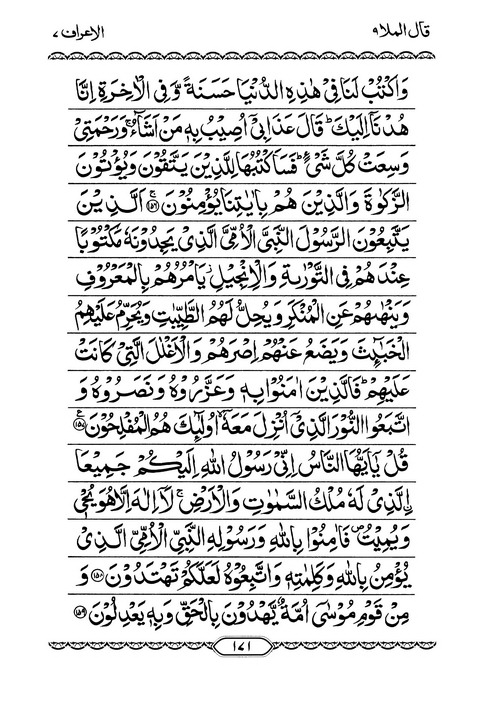 قال الملا ٩
الاعراف ٧
وَاكْتُبْ لَنَا فِيْ هٰذِهِ الدُّنْيَا حَسَنَةً وَّفِي الْاٰخِرَةِ اِنَّا
هُدْنَاۤ اِلَيْكَ ؕ قَالَ عَذَابِيْۤ اُصِيْبُ بِهٖ مَنْ اَشَآءُ ۚ وَرَحْمَتِيْ
وَسِعَتْ كُلَّ شَيْءٍ ؕ فَسَاَكْتُبُهَا لِلَّذِيْنَ يَتَّقُوْنَ وَيُؤْتُوْنَ
الزَّكٰوةَ وَالَّذِيْنَ هُمْ بِاٰيٰتِنَا يُؤْمِنُوْنَ ۚ ﴿۱۵۶﴾ اَلَّذِيْنَ
يَتَّبِعُوْنَ الرَّسُوْلَ النَّبِيَّ الْاُمِّيَّ الَّذِيْ يَجِدُوْنَهٗ مَكْتُوْبًا
عِنْدَهُمْ فِي التَّوْرٰىةِ وَالْاِنْجِيْلِ ؗ يَاْمُرُهُمْ بِالْمَعْرُوْفِ
وَيَنْهٰىهُمْ عَنِ الْمُنْكَرِ وَيُحِلُّ لَهُمُ الطَّيِّبٰتِ وَيُحَرِّمُ عَلَيْهِمُ
الْخَبٰٓئِثَ وَيَضَعُ عَنْهُمْ اِصْرَهُمْ وَالْاَغْلٰلَ الَّتِيْ كَانَتْ
عَلَيْهِمْ ؕ فَالَّذِيْنَ اٰمَنُوْا بِهٖ وَعَزَّرُوْهُ وَنَصَرُوْهُ وَ
اتَّبَعُوا النُّوْرَ الَّذِيْۤ اُنْزِلَ مَعَهٗۤ ۙ اُولٰٓئِكَ هُمُ الْمُفْلِحُوْنَ ﴿۱۵۷﴾
قُلْ يٰۤاَيُّهَا النَّاسُ اِنِّيْ رَسُوْلُ اللّٰهِ اِلَيْكُمْ جَمِيْعًا
اۨلَّذِيْ لَهٗ مُلْكُ السَّمٰوٰتِ وَالْاَرْضِ ۚ لَاۤ اِلٰهَ اِلَّا هُوَ يُحْيٖ
وَيُمِيْتُ ۪ فَاٰمِنُوْا بِاللّٰهِ وَرَسُوْلِهِ النَّبِيِّ الْاُمِّيِّ الَّذِيْ
يُؤْمِنُ بِاللّٰهِ وَكَلِمٰتِهٖ وَاتَّبِعُوْهُ لَعَلَّكُمْ تَهْتَدُوْنَ ﴿۱۵۸﴾ وَ
مِنْ قَوْمِ مُوْسٰۤى اُمَّةٌ يَّهْدُوْنَ بِالْحَقِّ وَبِهٖ يَعْدِلُوْنَ ﴿۱۵۹﴾
١٧١